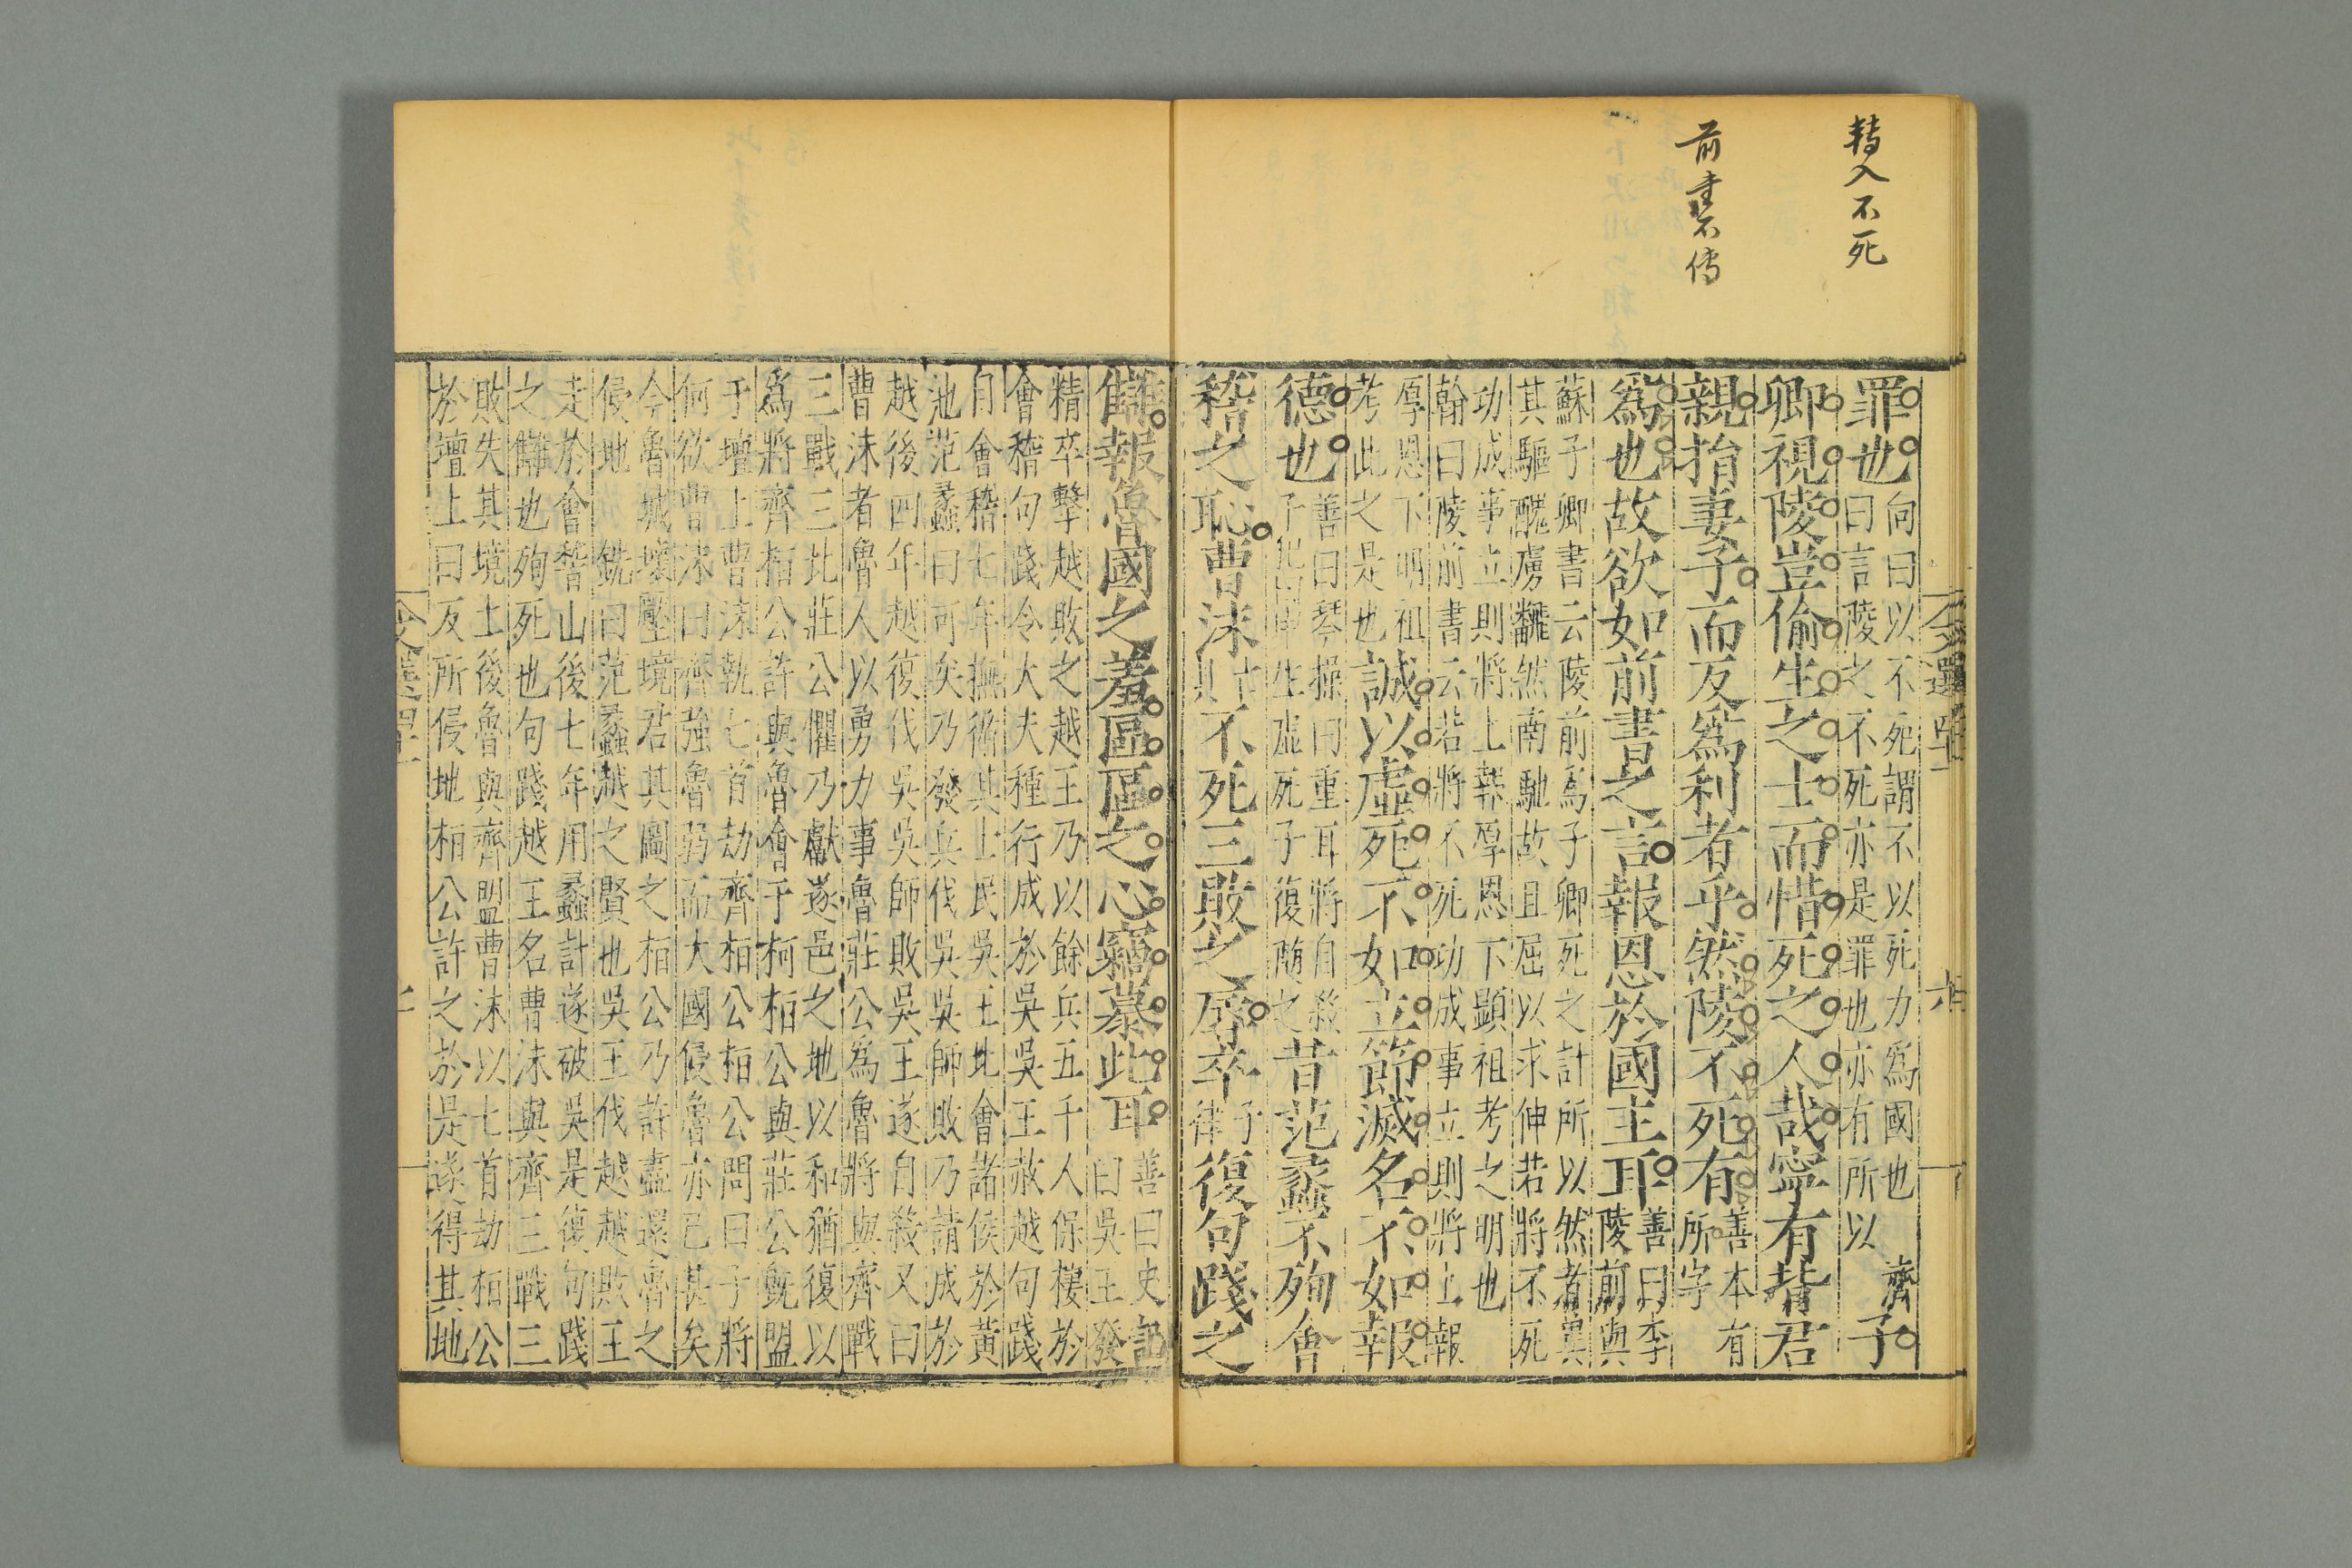 轉入不死
前書不傳
罪也向曰以不死謂不以死力爲國也曰言陵之不死亦是罪也亦有所以濟子
卿視陵豈偷生之士而惜死之人哉寧有背君
親捐妻子而反爲利者乎然陵不死有善本有所字
爲也故欲如前書之言報恩於國主耳善曰李陵前與
蘇子卿書云陵前爲子卿死之計所以然者冀
其驅醜虜翻然南馳故且屈以求伸若將不死
功成事立則將上報厚恩下顯祖考之明也
翰曰陵前書云若將不死功成事立則將上報
厚恩下明祖
考此之是也誠以虛死不如立節滅名不如報
德也善曰琴操曰重耳將自殺子犯曰申生虛死子復隨之昔范蠡不殉會
稽之恥曹沬亡具不死三敗之辱卒子律復句踐之
讎報魯國之羞區區之心竊慕此耳善曰史記曰吳王發
精卒擊越敗之越王乃以餘兵五千人保棲於
會稽句踐令大夫種行成於吳吳王赦越句踐
自會稽七年撫循其士民吳王北會諸侯於黃
池范蠡曰可矣乃發兵伐吳吳師敗乃請成於
越後四年越復伐吳吳師敗吳王遂自殺又曰
曹沬者魯人以勇力事魯莊公爲魯將與齊戰
三戰三北莊公懼乃獻遂邑之地以和猶復以
爲將齊桓公許與魯會于柯桓公與莊公旣盟
于壇上曹沬執匕首劫齊桓公桓公問曰子將
何欲曹沬曰齊強魯弱而大國侵魯亦已甚矣
今魯城壞壓境君其圖之桓公乃許盡還魯之
侵地　銑曰范蠡越之賢也吳王伐越越敗王
走於會稽山後七年用蠡計遂破吳是復句踐
之讎也殉死也句踐越王名曹沬與齊三戰三
敗失其境土後魯與齊盟曹沬以匕首劫桓公
於壇上曰反所侵地桓公許之於是遂得其地